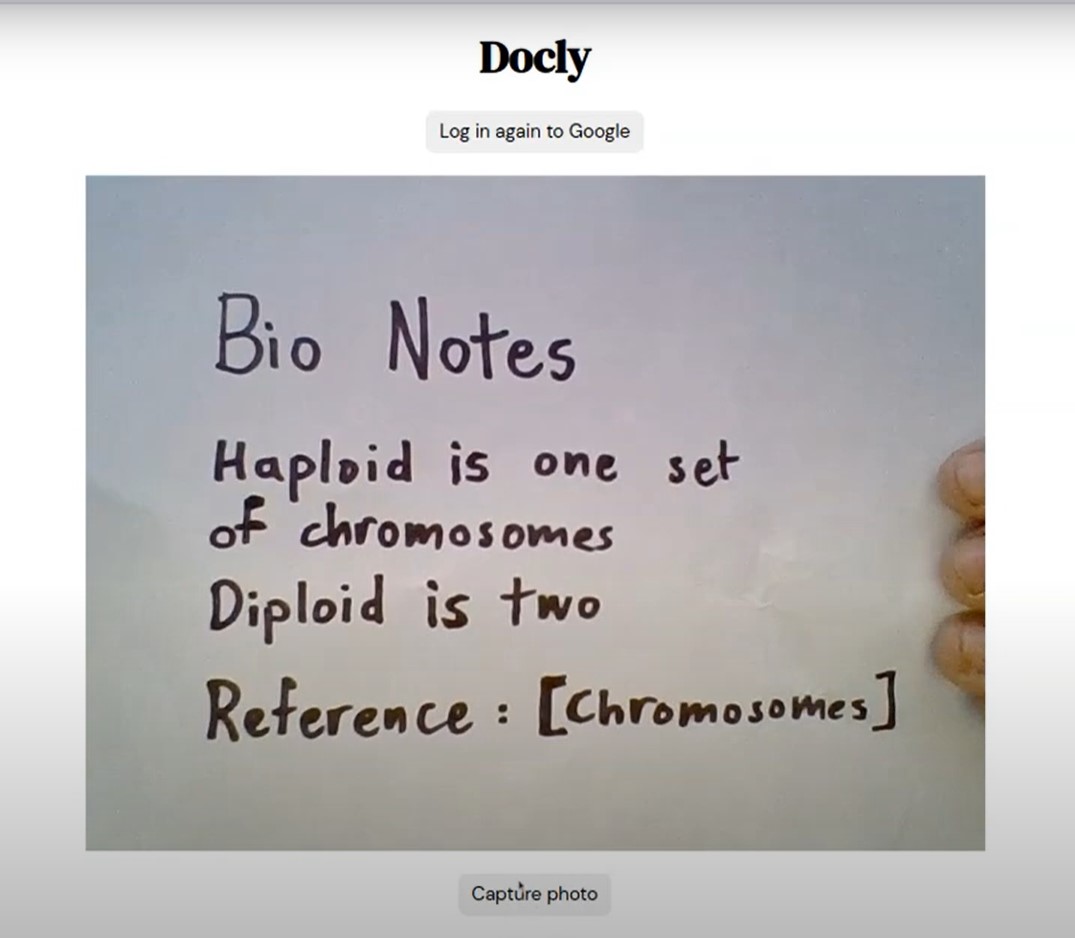 Docly
Log in again to Google
Bio Notes
Haploid is one set
of chromosomes
Diploid is two
Reference : [Chromosomes]
Capture photo